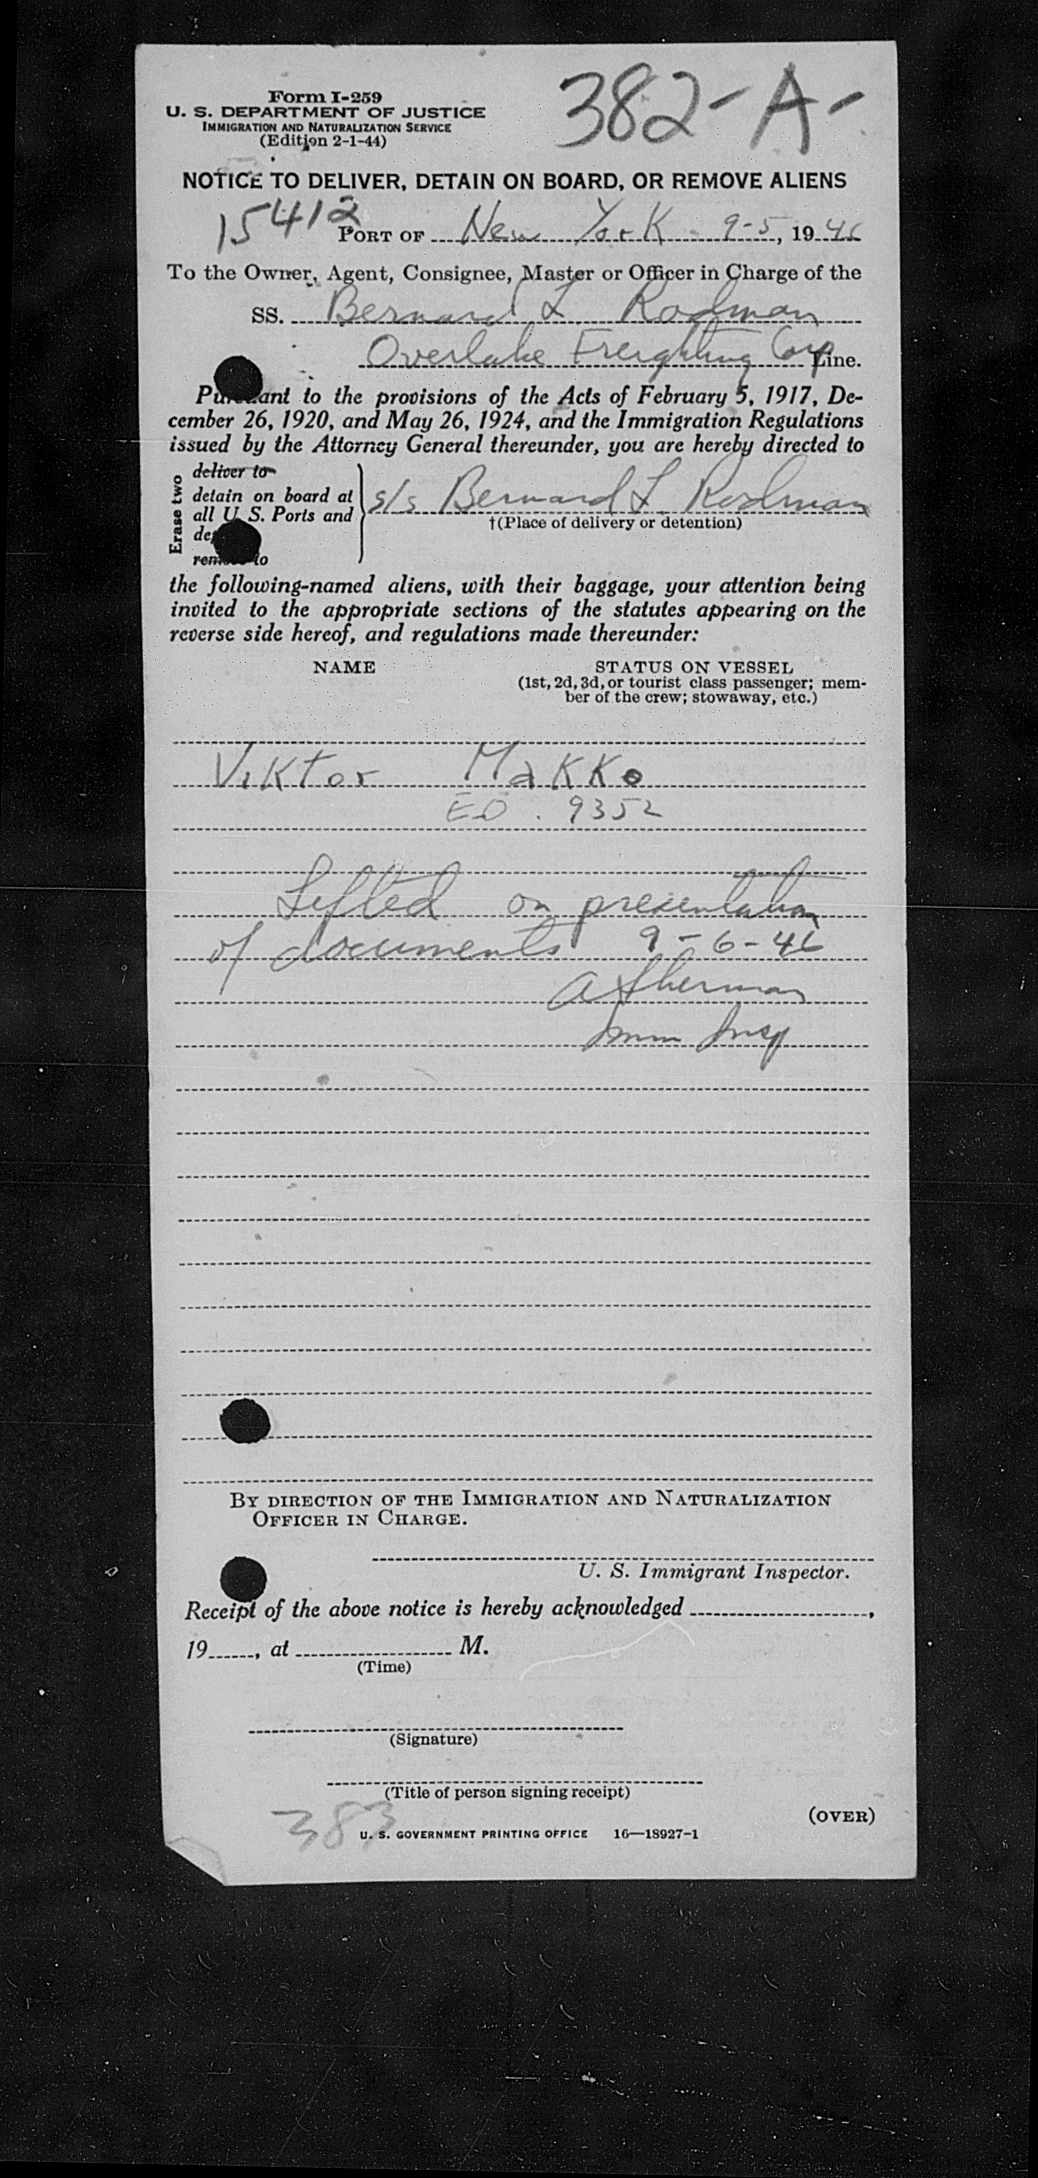 Form I-259
U. S. DEPARTMENT OF JUSTICE
IMMIGRATION AND NATURALIZATION SERVICE
(Edition 2-1-44)
382-A-
NOTICE TO DELIVER, DETAIN ON BOARD, OR REMOVE ALIENS
15412
PORT OF New York 9-5, 1946
To the Owner, Agent, Consignee, Master or Officer in Charge of the
SS. Bernard L Rodman
Overlake Freighting Corp Line.
Pursuant to the provisions of the Acts of February 5, 1917, De-
cember 26, 1920, and May 26, 1924, and the Immigration Regulations
issued by the Attorney General thereunder, you are hereby directed to
Erase two
deliver to
detain on board at
all U. S. Ports and
remove to
s/s Bernard L. Rodman
†(Place of delivery or detention)
the following-named aliens, with their baggage, your attention being
invited to the appropriate sections of the statutes appearing on the
reverse side hereof, and regulations made thereunder:
NAME
STATUS ON VESSEL
(1st, 2d, 3d, or tourist class passenger; mem-
ber of the crew; stowaway, etc.)
Viktor Makko
ED. 9352
Lifted on presentation
of documents 9-6-46
A Sherman
Imm Insp
BY DIRECTION OF THE IMMIGRATION AND NATURALIZATION
OFFICER IN CHARGE.
U. S. Immigrant Inspector.
Receipt of the above notice is hereby acknowledged
19, at M.
(Time)
(Signature)
(Title of person signing receipt)
(OVER)
383
U. S. GOVERNMENT PRINTING OFFICE 16—18927-1